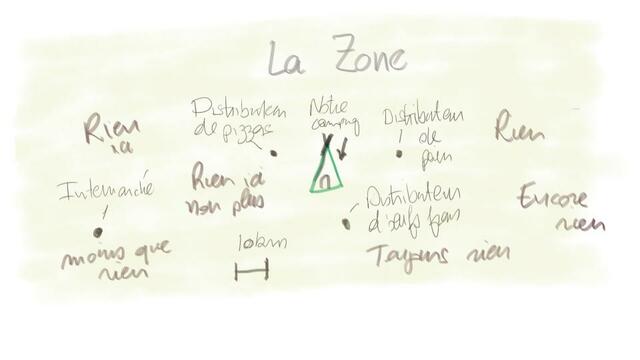 La Zone
Distributeur
de pizzas
Notre
camping
Distributeur
de
pain
Rien
ici
Rien
Rien ici
non plus
Intermarché
Distributeur
d'œufs frais
Encore
rien
moins que
rien
10km
Toujours rien